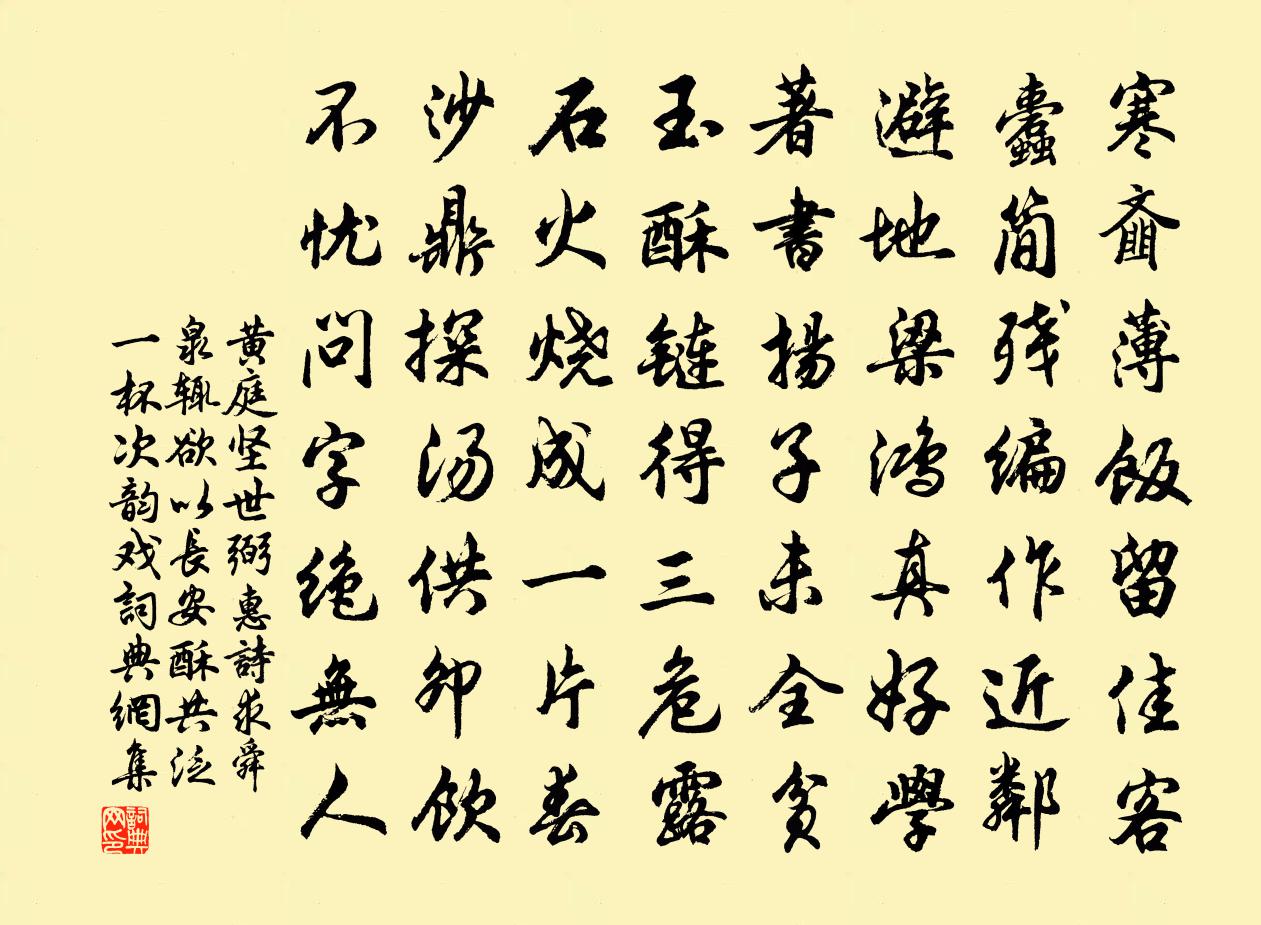 寒齑薄饭留佳客
蠹简残编作近鄰
避地梁鸿真好學
著書揚子未全贫
玉酥鏈得三危露
石火烧成一片春
沙鼎探汤供卯饮
不忧问字绝無人
黄庭坚世弼惠詩求舜
泉辄欲以長安酥共泛
一杯次韵戏詞典網集
詞典
网印